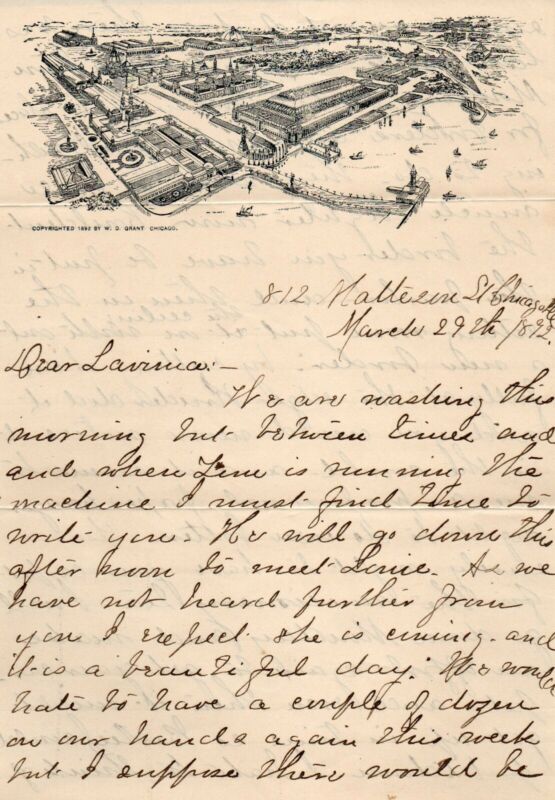 COPYRIGHTED 1892 BY W. D. GRANT CHICAGO.
812 Matteson St Chicago Ill
March 29th 1892.
Dear Lavinia:-
We are washing this
morning but between times and
and when is running the
machine I must find time to
write you. We will go down this
after noon to meet Linie. As we
have not heard further from
you I expect she is coming. and
it is a beautiful day. We would
hate to have a couple of dozen
on our hands again this week
but I suppose there would be